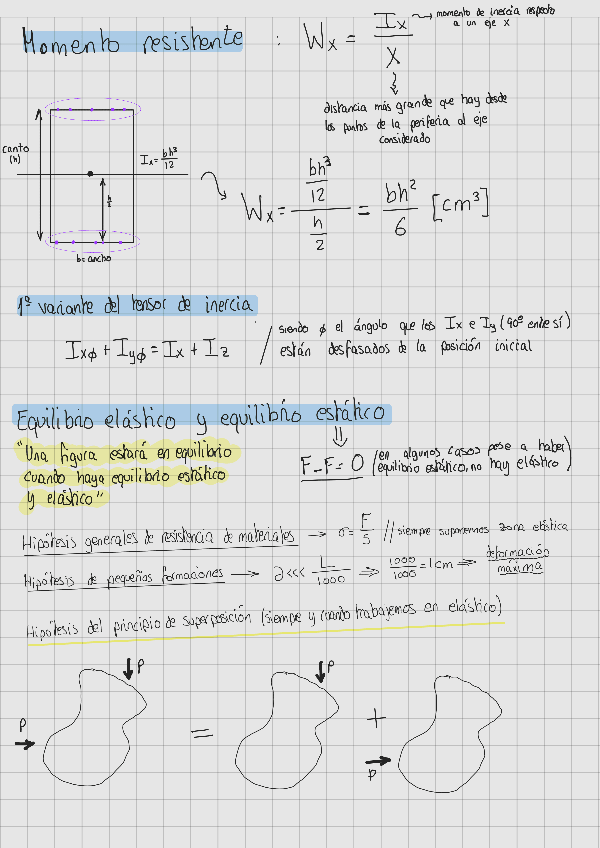 Momento resistente : Wx = Ix / X
momento de inercia respecto
a un eje X
distancia más grande que hay desde
los puntos de la periferia al eje
considerado
canto
(h)
Ix = bh³/12
h/2
b = ancho
Wx = (bh³/12) / (h/2) = bh²/6 [cm³]
1ª variante del tensor de inercia
Ixϕ + Iyϕ = Ix + I2 / siendo ϕ el ángulo que los Ix e Iy (90º entre sí)
están desfasados de la posición inicial
Equilibrio elástico y equilibrio estático
"Una figura estará en equilibrio
cuando haya equilibrio estático
y elástico"
F-F=0 (en algunos casos pese a haber
equilibrio estático, no hay elástico)
Hipótesis generales de resistencia de materiales → σ = F/S // siempre suponemos zona elástica
Hipótesis de pequeñas formaciones → ∂ <<< L/1000 ⇒ 1000/1000 = 1cm ⇒ deformación
máxima
Hipótesis del principio de superposición (siempre y cuando trabajemos en elástico)
P P = P + P